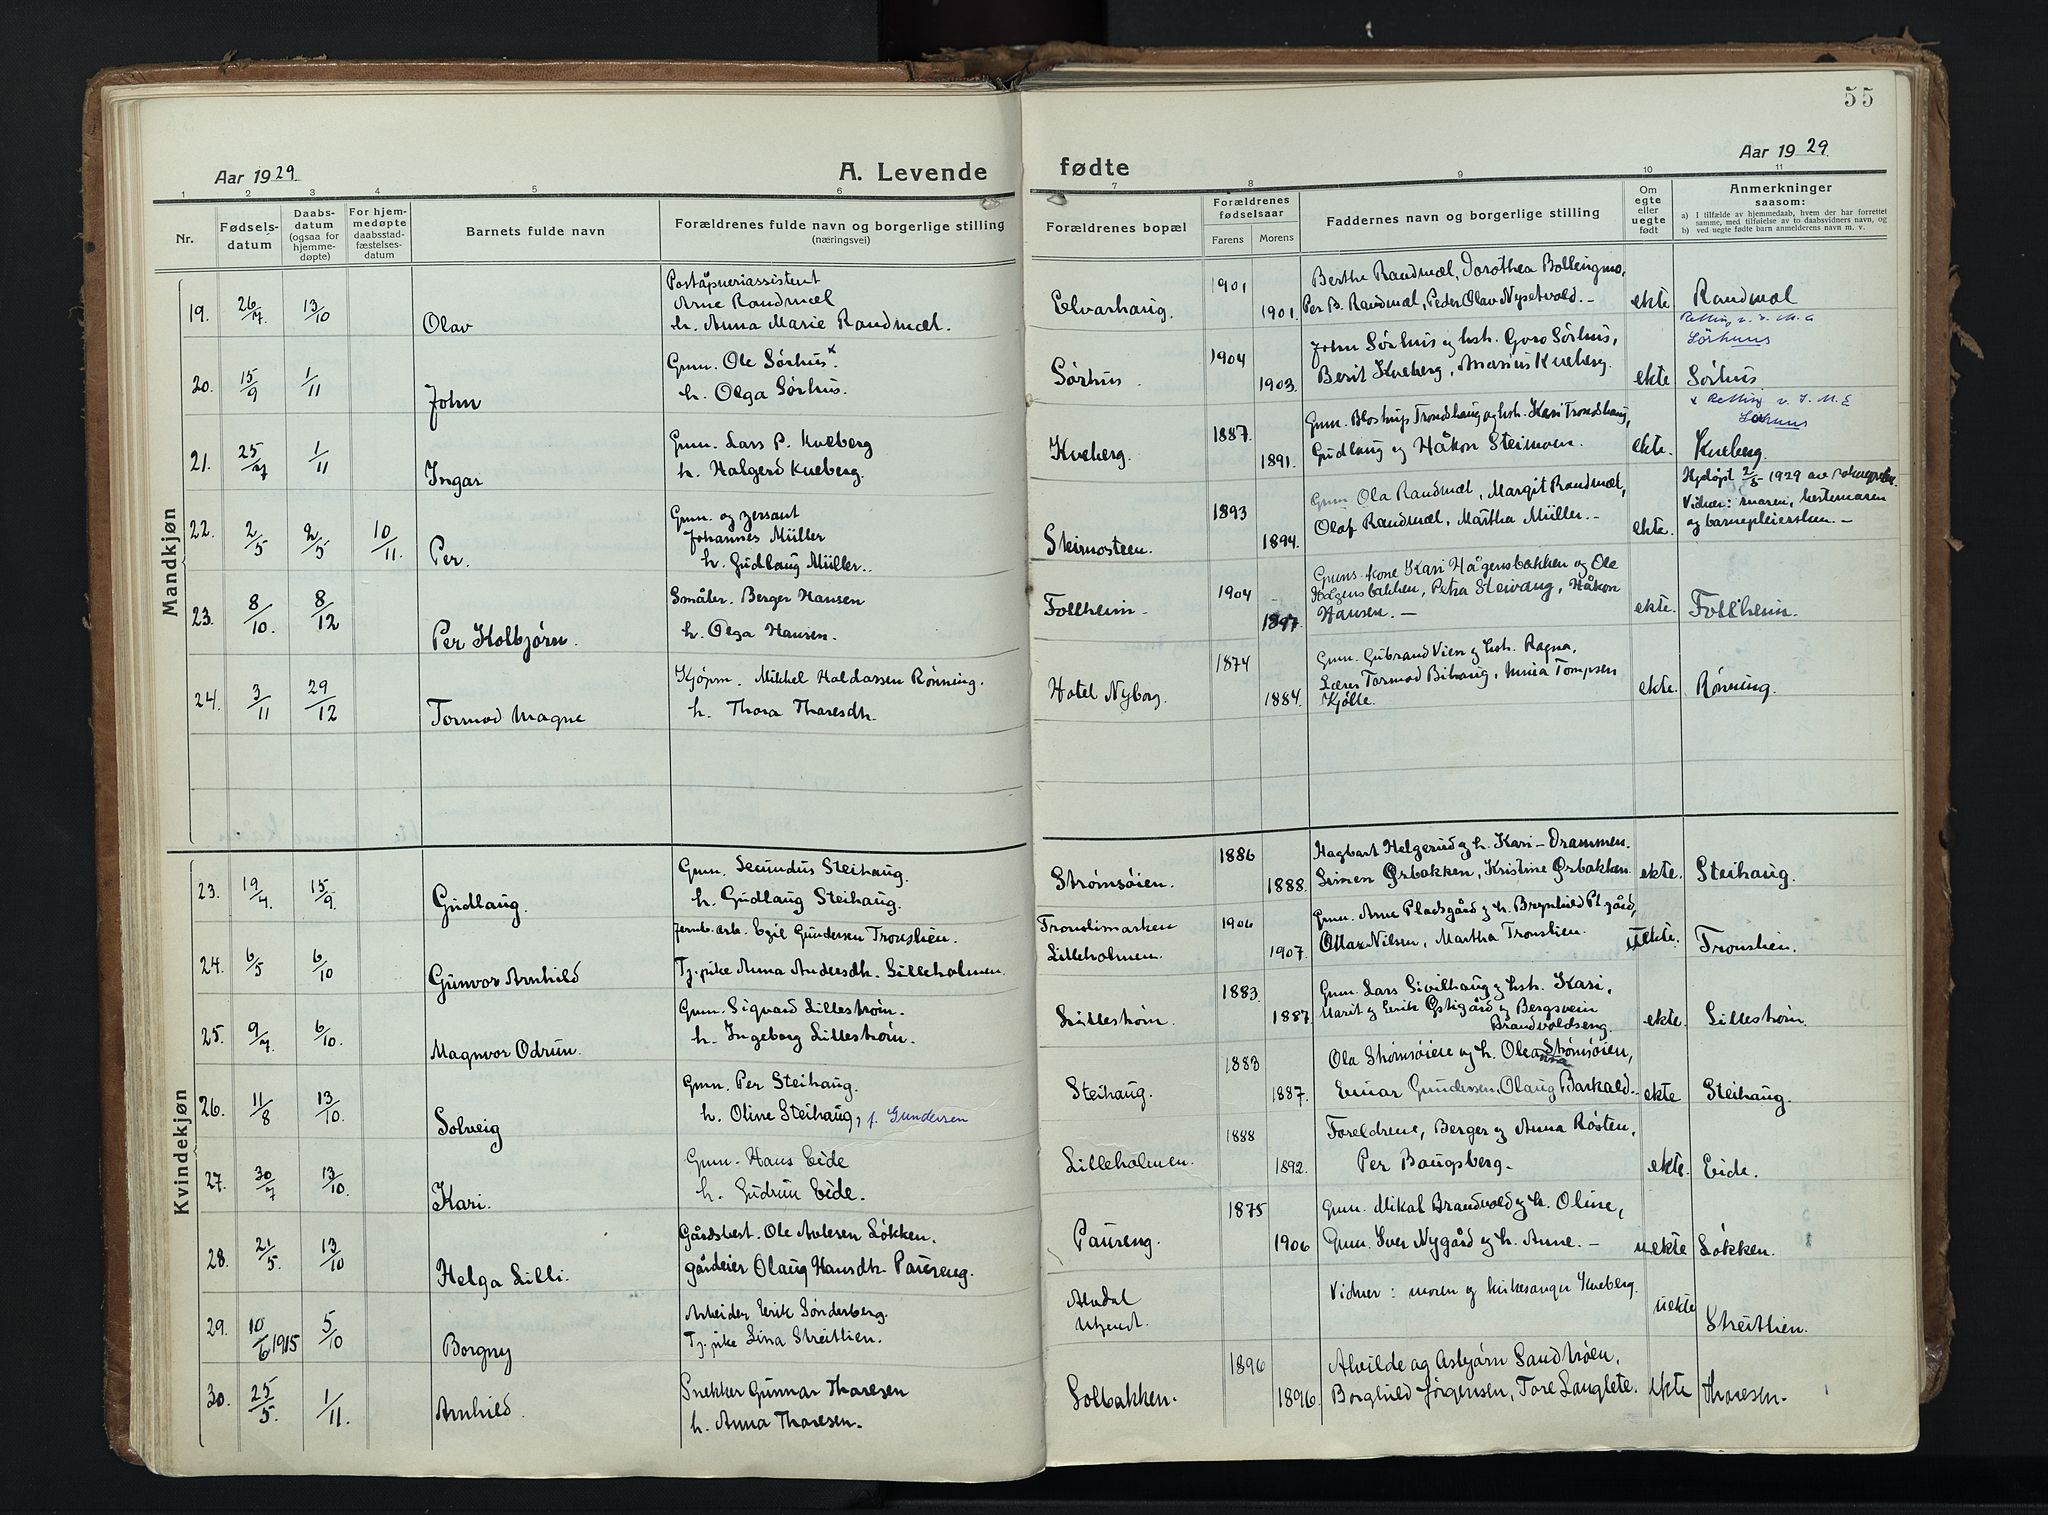 55
Aar 1929.
A. Levende
fødte
Aar 1929.
1 2 3 4 5 6 7 8 9 10 11
Nr.
Fødsels-
datum
Daabs-
datum
(ogsaa for
hjemme-
døpte)
For hjem-
medøpte
daabsstad-
fæstelses-
datum
Barnets fulde navn
Forældrenes fulde navn og borgerlige stilling
(næringsvei)
Forældrenes bopæl
Forældrenes
fødselsaar
Farens Morens
Faddernes navn og borgerlige stilling
Om
egte
eller
uegte
født
Anmerkninger
saasom:
a) I tilfælde av hjemmedaab, hvem der har forrettet
samme, med tilføielse av to daabsvidners navn, og
b) ved uegte fødte barn anmelderens navn m. v.
Mandkjøn
19. 26/7 13/10 Olav
Poståpneriassistent
Arne Randmæl
h. Anna Marie Randmæl.
Elvarhaug. 1901 1901.
Berthe Randmæl, Dorothea Bollingmo,
Per B. Randmæl, Peder Olav Nysetvold. –
ekte Randmæl
Retting
Sørhuus
20. 15/9 1/11 John
Gmn. Ole Sørhus x
h. Olga Sørhus.
Sørhus 1904 1903.
John Sørhus og hst. Goro Sørhus,
Berit Kveberg, Marius Kveberg.
ekte Sørhus.
x Retting
Sørhuus
21. 25/7 1/11 Ingar
Gmn. Lars P. Kveberg
h. Halgerd Kveberg.
Kveberg. 1887. 1891.
Gmn. Blostrup Trondshaug og hst. Kari Trondshaug,
Gudlaug og Håkon Steimoen.
ekte. Kveberg.
22. 2/5 2/5 10/11. Per.
Gmn. og sersant
Johannes Müller
h. Gudlaug Müller..
Skirmosteen. 1893 1894.
Gmn Ola Randmæl, Margit Randmæl,
Olaf Randmæl, Martha Müller. –
ekte.
Hjdøpt 2/5 1929 av
Vidner: moren, bestemoren
og barnepleiersken. –
23. 8/10 8/12 Per Kolbjørn.
Småbr. Berger Hansen
h. Olga Hansen.
Follheim. 1904 1897
Gmns. kone Kari Hågensbakken og Ole
Hågensbakken, Petra Steivang, Håkon
Hansen. –
ekte. Follheim.
24. 3/11 29/12 Tormod Magne
Kjøpm. Mikkel Haldassen Rønning.
h. Thora Tharesdtr.
Hotel Nyborg. 1874 1884.
Gmn. Gubrand Vien og hst. Ragna,
Lærer Tormod Bihaug, Minia Tompsen
Kjølle.
ekte. Rønning.
Kvindekjøn
23. 19/4. 15/9. Gudlaug.
Gmn. Secundus Steihaug.
h. Gudlaug Steihaug.
Strømsøien. 1886 1888.
Hagbart Helgerud og h. Kari – Drammen.
Simen Ørbakken, Kristine Ørbakken.
ekte. Steihaug.
24. 6/5 6/10 Gunvor Arnhild
Jernb. arb. Egil Gundersen Tronslien.
Tj. pike Anna Andersdtr. Lilleholmen.
Trondsmarken
Lilleholmen. 1906 1907.
Gmn. Arne Pladsgård og h. Brynhild Pl.gård,
Ottar Nilsen, Martha Tronslien.
uekte. Tronslien.
25. 9/7 6/10. Magnvor Odrun.
Gmn. Sigvard Lillestrøm.
h. Ingeborg Lillestrøm.
Lillestrøm. 1883. 1887.
Gmn. Lars Sivilhaug og hst. Kari,
Marit og Eirik Østigård og Bergsvein
Brandvoldseng.
ekte. Lillestrøm.
26. 11/8 13/10. Solveig
Gmn. Per Steihaug.
h. Oline Steihaug, f. Gundersen
Steihaug. 1883 1887.
Ola Strømsøien og h. Oleanna Strømsøien,
Einar Gundersen, Olaug Barkald.
ekte Steihaug.
27. 30/7 13/10. Kari.
Gmn. Hans Eide
h. Gudrun Eide.
Lilleholmen. 1888 1892.
Foreldrene, Berger og Anna Røsten,
Per Baugsberg.
ekte. Eide.
28. 21/5. 13/10 Helga Lilli.
Gårdsbest. Ole Avlesen Løkken.
gårdeier Olaug Hansdtr. Paureng.
Paureng. 1875 1906
Gmn. Mikal Brandvold og h. Oline,
Gmn. Iver Nygård og h. Anne. –
uekte Løkken.
29. 10/6 1915 5/10 Borgny
Arbeider Eirik Sønderberg.
Tj. pike Lina Streitlien.
Alvdal
Utgnd.
Vidner: moren og kirkesanger Kveberg.
uekte Streitlien.
30. 25/5. 1/11. Arnhild.
Snekker Gunnar Tharesen
h. Anna Tharesen.
Solbakken. 1896 1896.
Alvilde og Asbjørn Sandtrøen,
Borghild Jørgensen, Tore Langlete.
ekte Tharesen.